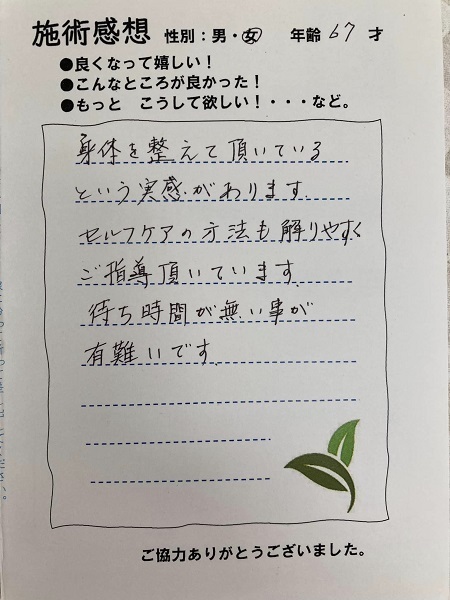 施術感想 性別：男・女 年齢 67 才
●良くなって嬉しい！
●こんなところが良かった！
●もっと こうして欲しい！・・・など。
身体を整えて頂いている
という実感があります
セルフケアの方法も解りやすく
ご指導頂いています
待ち時間が無い事が
有難いです
ご協力ありがとうございました。